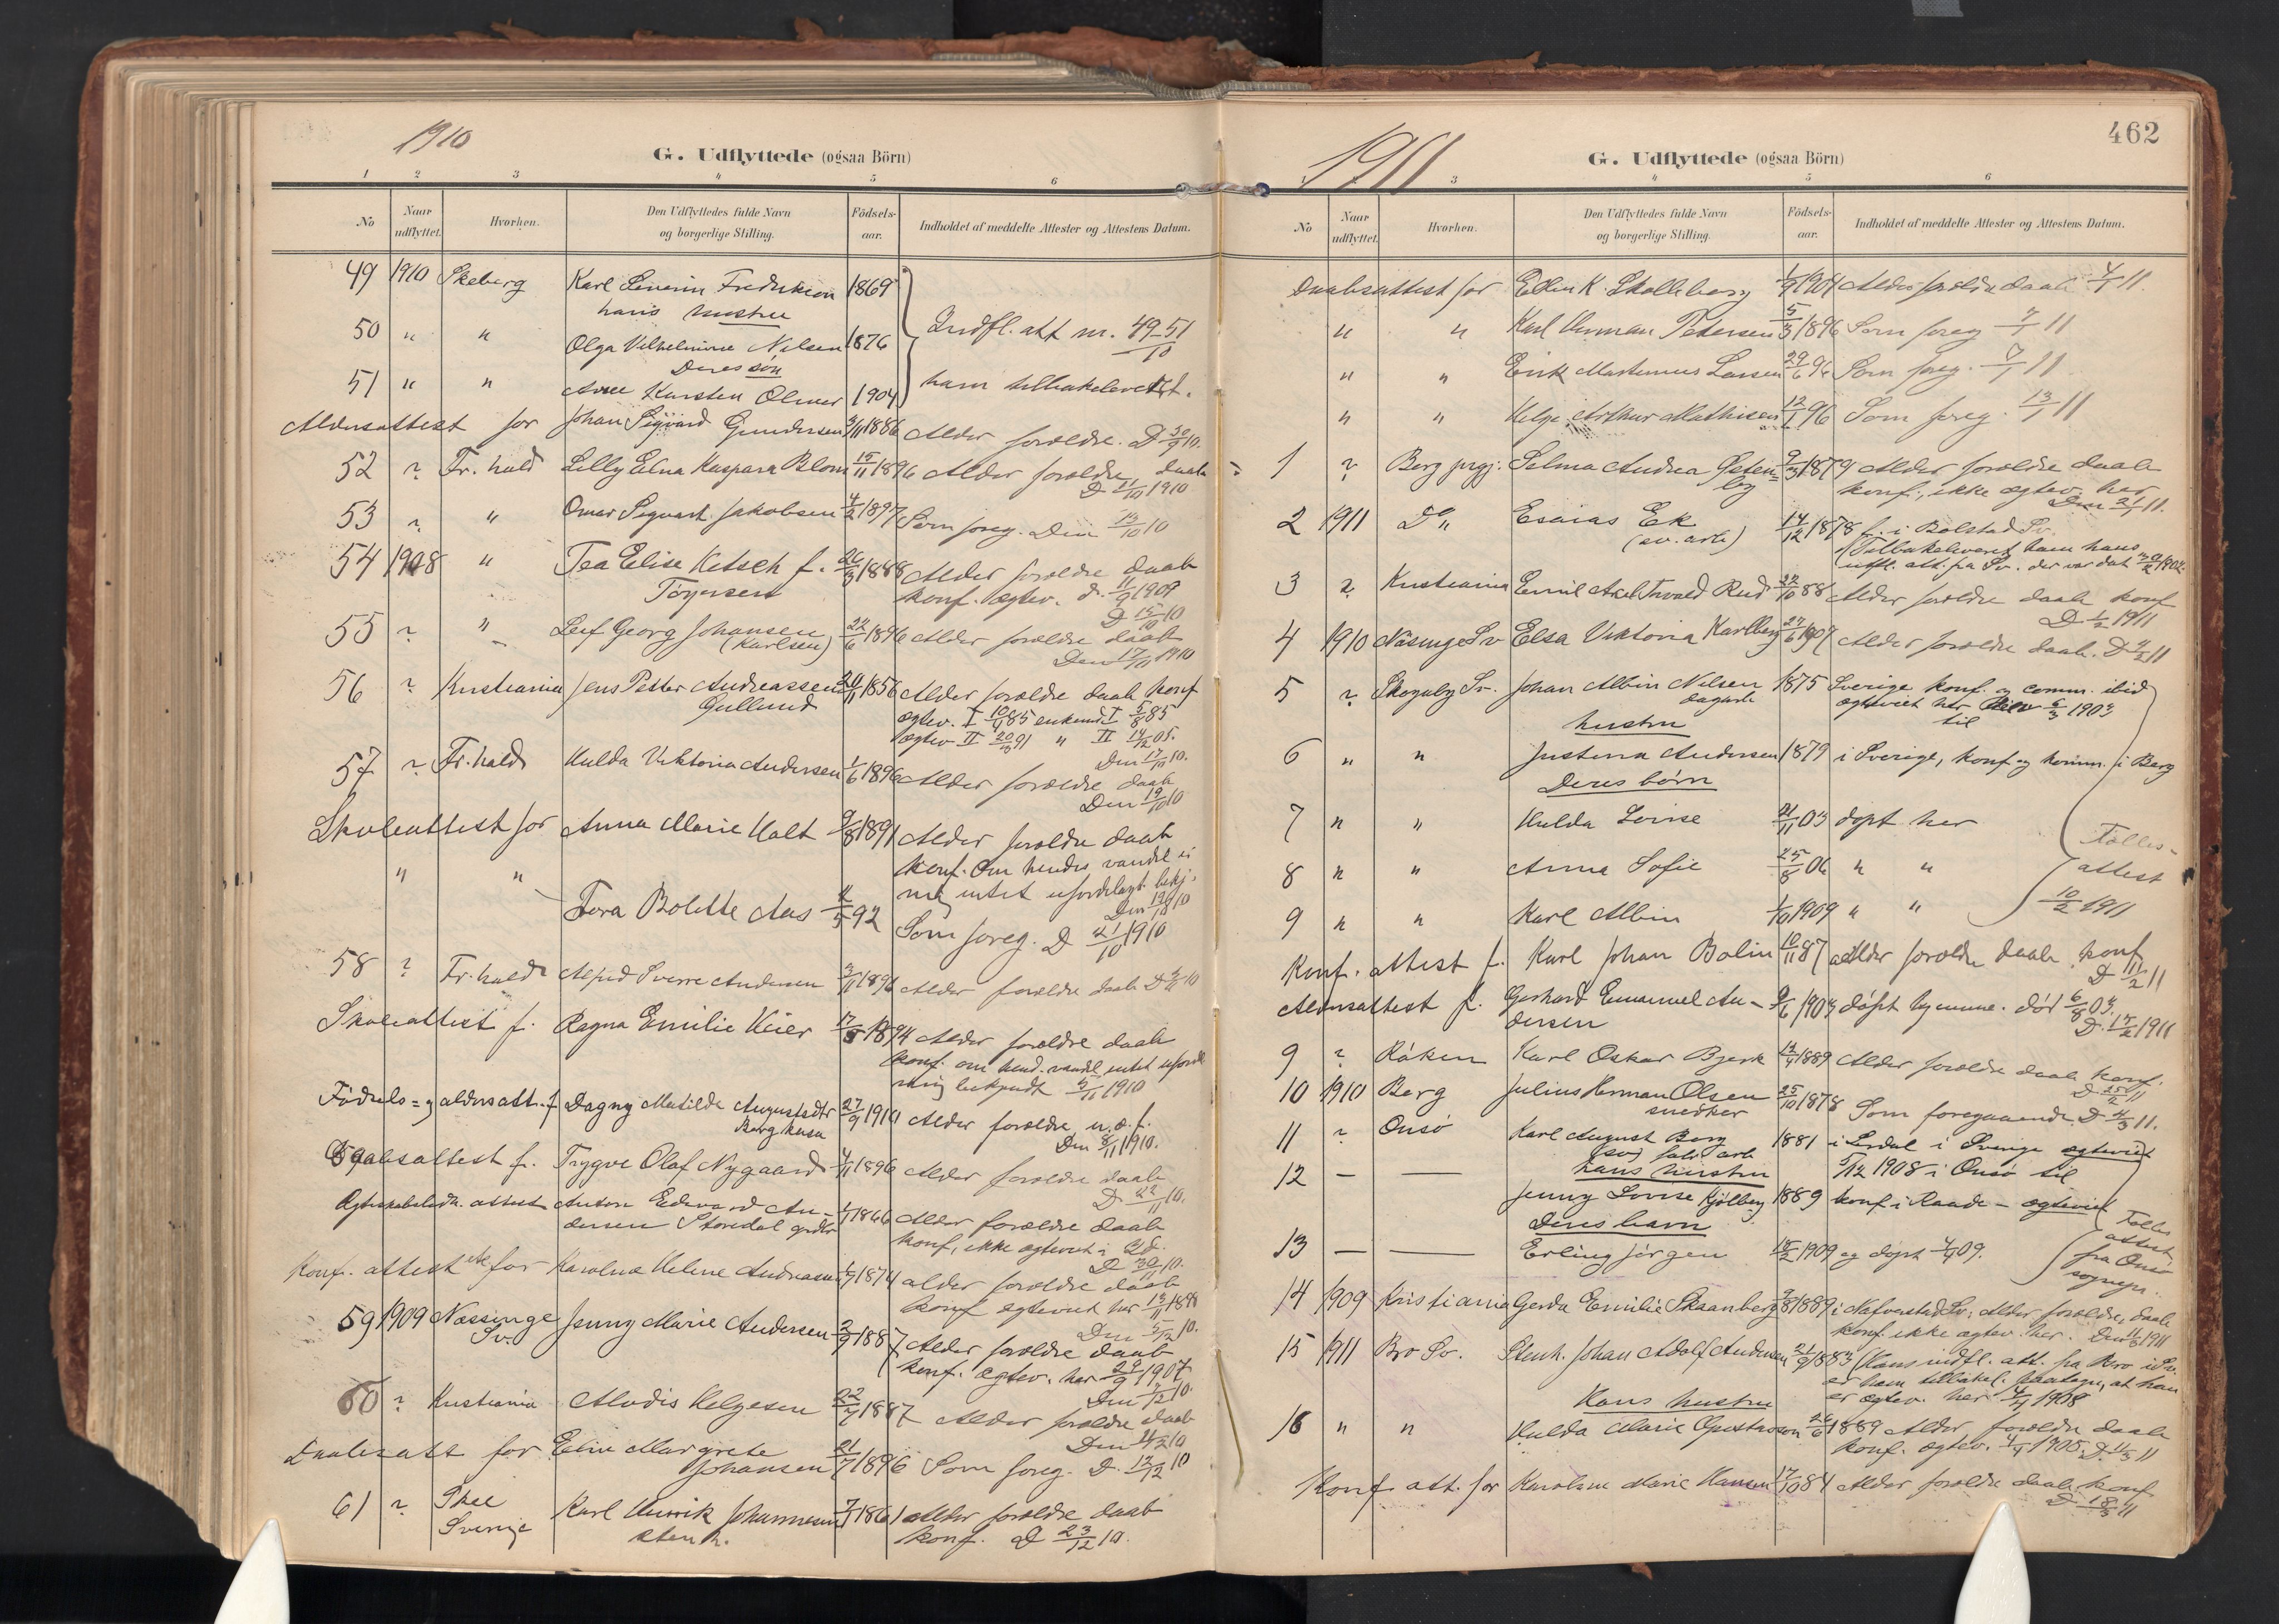 1910
G. Udflyttede (ogsaa Börn)
1 2 3 4 5 6
No
Naar udflyttet.
Hvorhen.
Den Udflyttedes fulde Navn og borgerlige Stilling.
Födsels-aar.
Indholdet af meddelte Attester og Attestens Datum.
49 1910 Skeberg Karl Severin Fredriksen 1869
hans hustru
50 " " Olga Vilhelmine Nilsen 1876 Indfl. att nr. 49-51/10
Deres sön
51 " " Arne Karsten Olmer 1904 ham tilbakelevert.
Aldersattest for Johan Sigvard Gundersen 3/11 1886 Alder forældre. D 30/9 10.
52 ? Fr.hald Lilly Elna Kaspara Blom 15/11 1896 Alder forældre daab
D 11/10 1910
53 ? " Omar Sigvart Jakobsen 4/2 1897 Som foreg. Den 13/10 10
54 1908 " Tea Elise Ketsch f. 26/3 1888 Alder forældre daab
Törgersen konf. ægtev. d. 11/9 1909
D 15/10 10
55 ? " Leif Georg Johansen 22/6 1896 Alder forældre daab
(Karlsen) Den 17/10 1910
56 ? Kristiania Jens Petter Andreassen 24/11 1856 Alder forældre daab konf
Gullund ægtev. I 10/4 85 enkem. I 5/8 85
ægtev II 20/10 91 " II 14/12 05.
Den 17/10 10.
57 ? Fr.hald Hulda Viktoria Andersen 1/6 1896 Alder forældre daab
Den 19/10 10
Skoleattest for Anna Marie Halt 9/8 1891 Alder forældre daab
konf. Om hendes vandel er
mig intet ufordelagt. bekj.
Den 19/10 10
" " Tora Bolette Aas 4/5 92 Som foreg. D 21/10 1910
58 ? Fr.hald Alfred Sverre Andersen 3/11 1896 Alder forældre daab D 3/11 10
Skoleattest f. Ragna Emilie Heier 17/5 1894 Alder forældre daab
konf. om hend. vandel intet ufordel
mig bekjendt 5/11 1910
Födsels= og aldersatt. f Dagny Matilde Augustadtr 27/9 1910 Alder forældre u. æ. f.
Berghusa Den 8/11 1910.
Daabsattest fr. Trygve Olaf Nygaard 4/11 1896 Alder forældre daab
D 22/11 10.
Anton Edevard An- 1/1 1866 Alder forældre daab
dersen Storedal konf, ikke ægteviet i
D 30/11 10.
Konf. attest for Karoline Helene Andreasen 1/9 1874 alder forældre daab
konf ægteviet her 13/11
Den 5/12 10.
59 1909 Næssinge Jenny Marie Andersen 2/9 1887 Alder forældre daab
Sv. konf. ægtev. her 29/9 1907
60 ? Kristiania Alvdis Helgesen 22/7 1887 Alder forældre daab
Daabsatt for Elin Margrete 21/7 1896 Som foreg. D. 12/12 10
Johansen
61 ? Skee Karl Henrik Johannesen 7/1 1861 Alder forældre daab
Sverige stenh. konf. D 23/12 10.
1911
462
G. Udflyttede (ogsaa Börn)
3 4 5 6
No
Naar udflyttet.
Hvorhen.
Den Udflyttedes fulde Navn og borgerlige Stilling.
Födsels-aar.
Indholdet af meddelte Attester og Attestens Datum.
Daabsattest for Ellen K. Skolleborg Alder forældre daab 4/1 11.
" " Karl Herman Petersen 5/3 1896 Som foreg 7/1 11
" " Erik Martinius Larsen 29/6 96 Som foreg. 7/1 11
" " Helge Arthur Mathisen 12/1 96 Som foreg. 13/1 11
1 ? Berg prgj. Selma Andrea Östen= 9/3 1879 Alder forældre daab
berg konf., ikke ægtev. her
Den 21/1 11.
2 1911 Do " Esaias Ek 14/12 1878 f. i Bolstad Sv.
(sv. arb) Tilbakeleveret ham hans
utfl. att. fra Sv. der var dat
3 ? Kristiania Emil Axel Trvald Rud 22/10 88 Alder forældre daab konf
D 1/2 1911
4 1910 Näsinge Sv Elsa Viktoria Karlberg 1907 Alder forældre daab. D 4/2 11
5 ? Skogaby Sv. Johan Albin Nilsen 1875 Sverige konf. og comm. ibid
dagarb ægteviet her 6/3 1903
hustru til
6 " " Justina Andersen 1879 i Sverige, konf og komm. i Berg
Deres börn
7 " " Hulda Lovise 21/11 03 döpt her
8 " " Anna Sofie 25/8 06 " "
9 " " Karl Albin 1/10 1909 " "
Fælles-
attest
10/2 1911
Konf. attest f. Karl Johan Bolin 10/11 87 Alder forældre daab. konf
D 11/2 11
Aldersattest f. Gerhard Emanuel An- 9/6 1903 döpt hjemme. död 6/8 03.
dersen D. 17/2 1911
9 ? Råken Karl Oskar Bjerk 1889 Alder forældre daab konf.
D 25/2 11
10 1910 Berg Julius Herman Olsen 25/10 1878 Som foregaaende. D 4/3 11.
snedker
11 ? Onsö Karl August Berg 1881 i Lerdal i Sverige ægteviet
(sv) fabr arb 5/12 1908 i Onsö til
12 — — hans hustru
Jenny Lovise Kjölberg 1889 konf i Raade – ægteviet
Deres barn
13 — — Erling Jörgen 15/2 1909 og döpt 4/4 09.
Fælles
attest
fra Onsö
sognepr.
14 1909 Kristiania Gerda Emilie Skaanberg 1889 i Nafverstad Sv. Alder forældre, daab
konf. ikke ægtev. her. Den 11/3 1911
15 1911 Bro Sv. Stenh. Johan Adolf Andersen 21/9 1883 (Hans indfl. att. fra Bro i Sv.
er ham tilbakel. paategn. at han
Hans hustru er ægtev. her 4/4 1908
16 " " Hulda Marie Gustavson 1889 Alder forældre daab
konf. ægtev. D. 11/3 11
Konf att. for Karoline Marie Hansen 17/10 84 Alder forældre daab konf
D 18/3 11